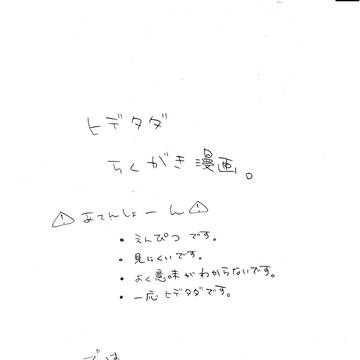 ヒデタダ
らくがき漫画。
⚠あてんしょーん⚠
・えんぴつです。
・見にくいです。
・よく意味がわからないです。
・一応ヒデタダです。
では